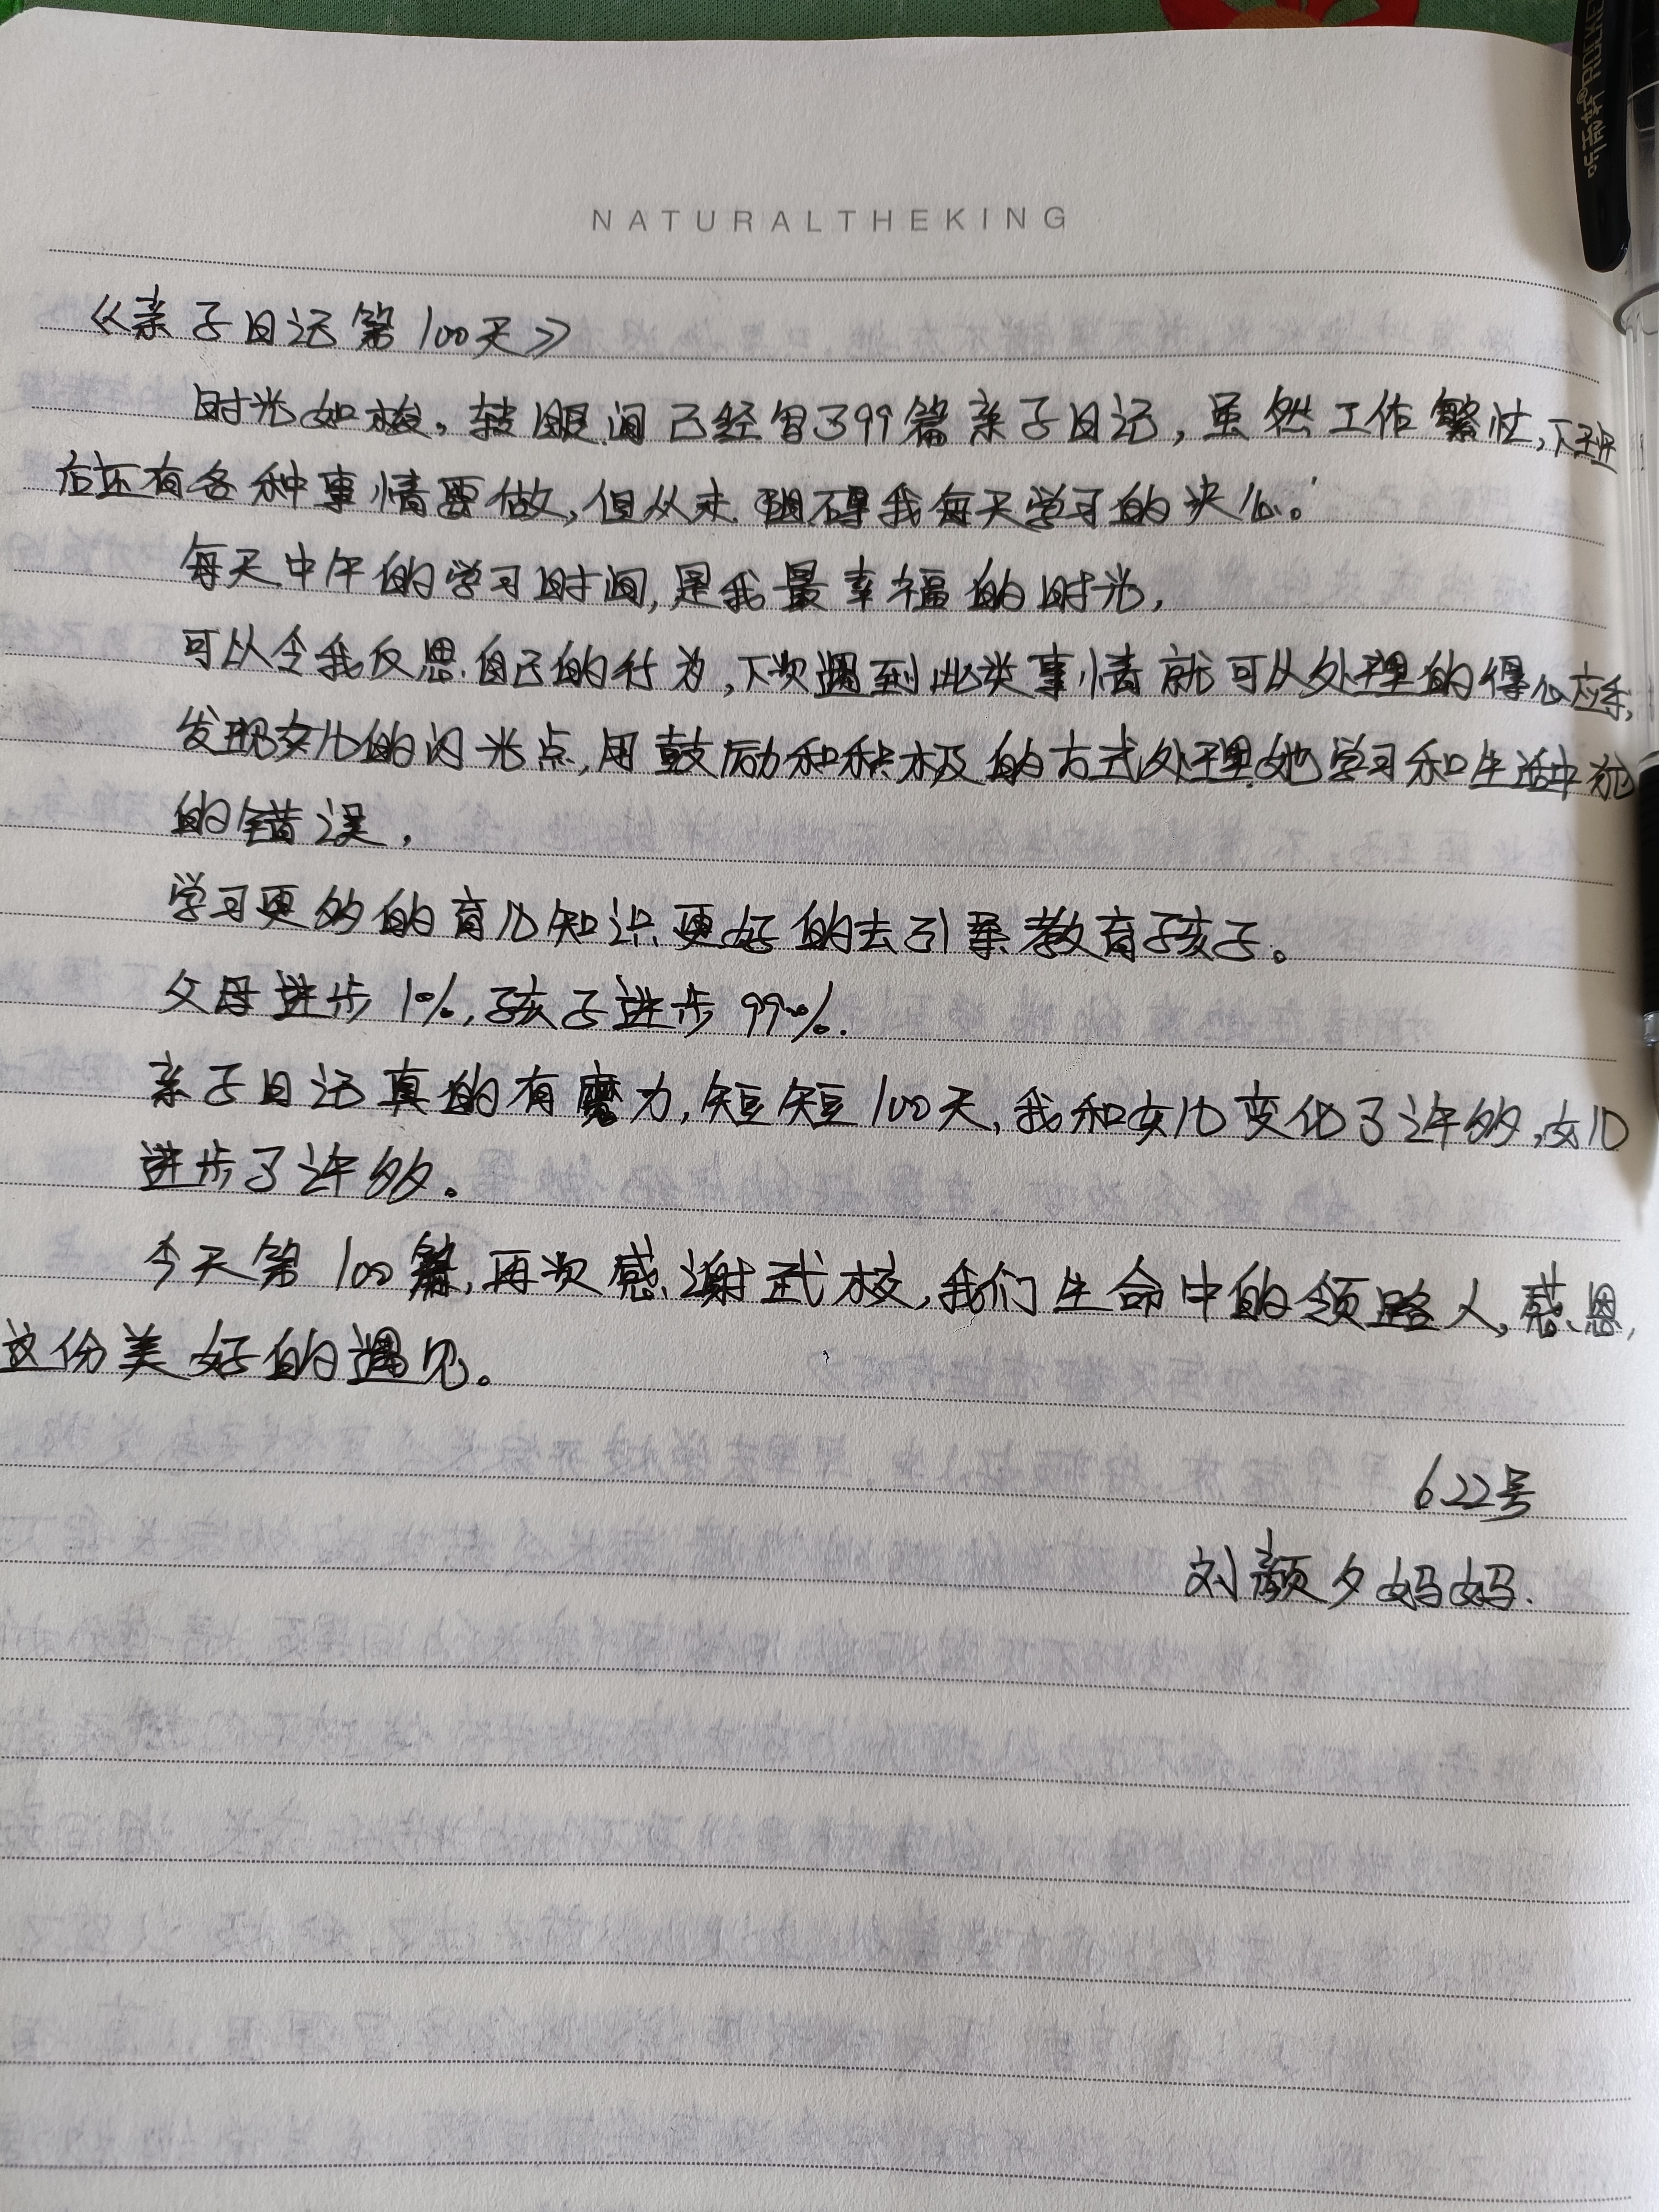 NATURALTHEKING
《亲子日记第100天》
时光如梭。转眼间已经写了99篇亲子日记,虽然工作繁忙,下班
后还有各种事情要做,但从未阻碍我每天学习的决心。
每天中午的学习时间,是我最幸福的时光,
可以令我反思自己的行为,下次遇到此类事情就可以处理的得心应手,
发现女儿的闪光点,用鼓励和积极的方式处理她学习和生活中犯
的错误.
学习更多的育儿知识更好的去引导教育孩子。
父母进步1%,孩子进步99%.
亲子日记真的有魔力,短短100天,我和女儿变化了许多,女儿
进步了许多。
今天第100篇,再次感谢武校,我们生命中的领路人,感恩,
这份美好的遇见。
6.22号
刘颜夕妈妈.